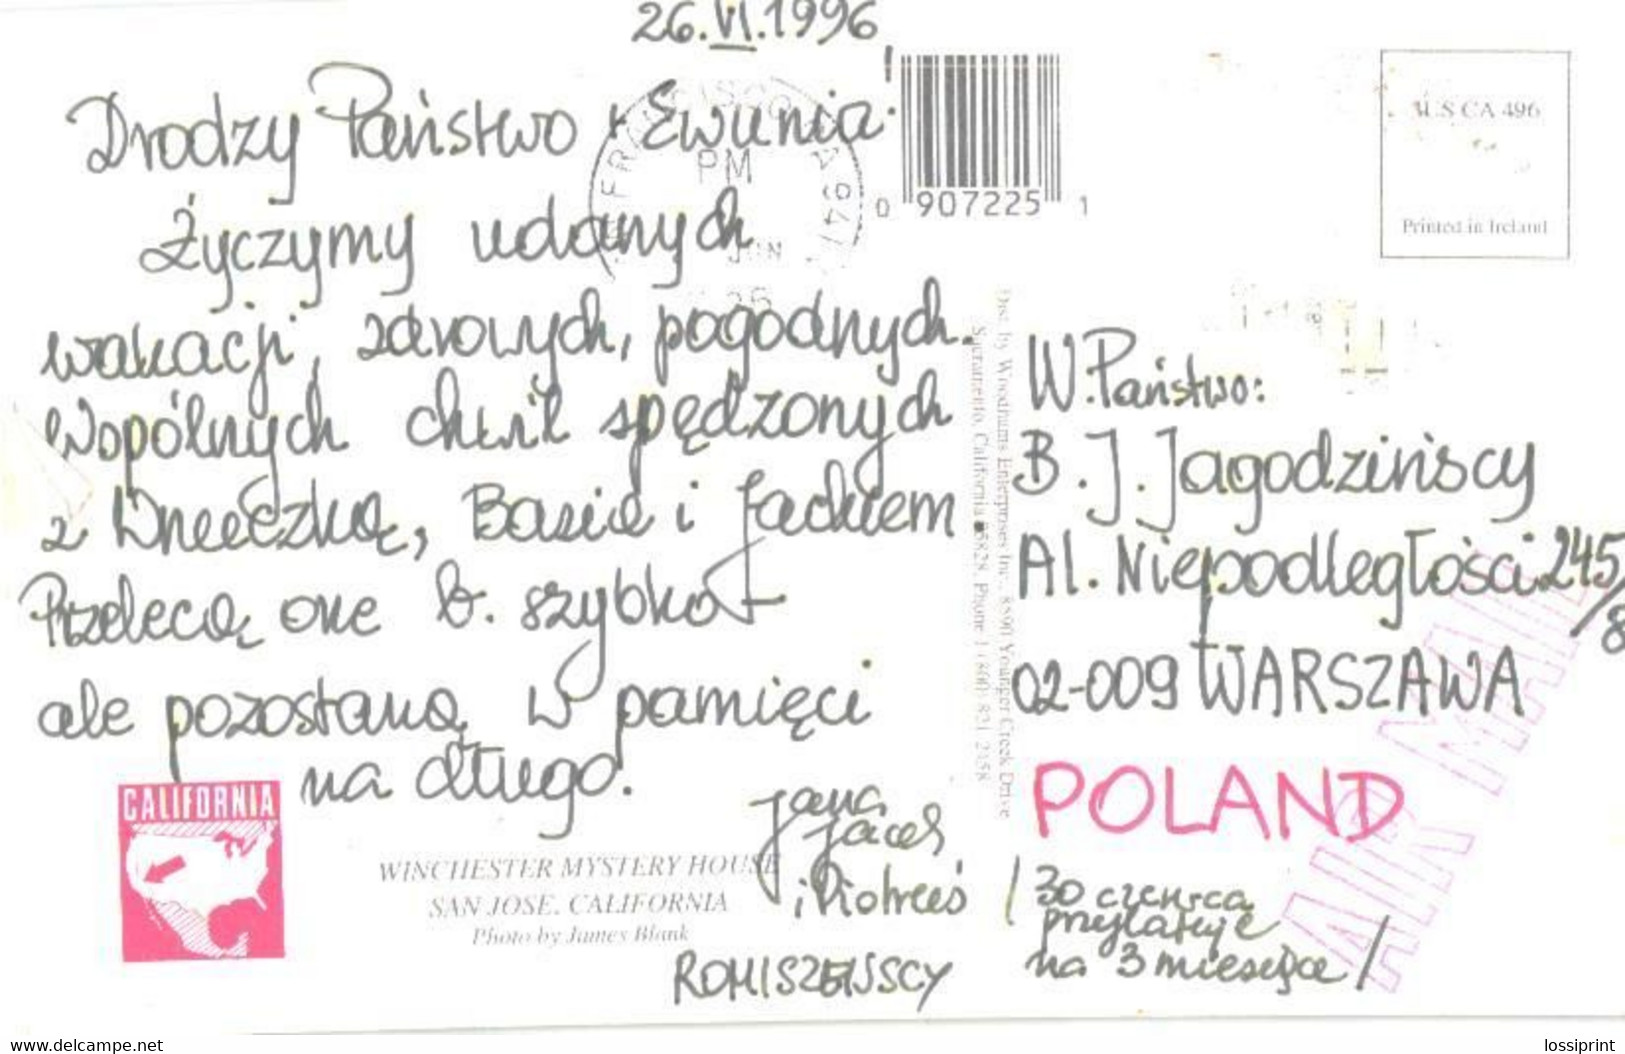 26.VI.1996
Drodzy Państwo + Ewunia!
Życzymy udanych
wakacji, zdrowych, pogodnych.
Wspólnych chwil spędzonych
z Wneeczką, Basią i Jackiem
Przelecą one b. szybko –
ale pozostaną w pamięci
na długo.
Jacek
i Piotreś
ROMISZEWSCY
CALIFORNIA
WINCHESTER MYSTERY HOUSE
SAN JOSE, CALIFORNIA
Photo by James Blank
PM
JUN
0 907225 1
Dist. by Woodrums Enterprises Inc., 8590 Younger Creek Drive
Sacramento, California 95828, Phone 1 (800) 821 2458
CA 496
Printed in Ireland
W. Państwo:
B. J. Jagodzińscy
Al. Niepodległości 245/8
02-009 WARSZAWA
POLAND
AIR MAIL
/ 30 czerwca
przylatuje
na 3 miesiące /
www.delcampe.net
lossiprint